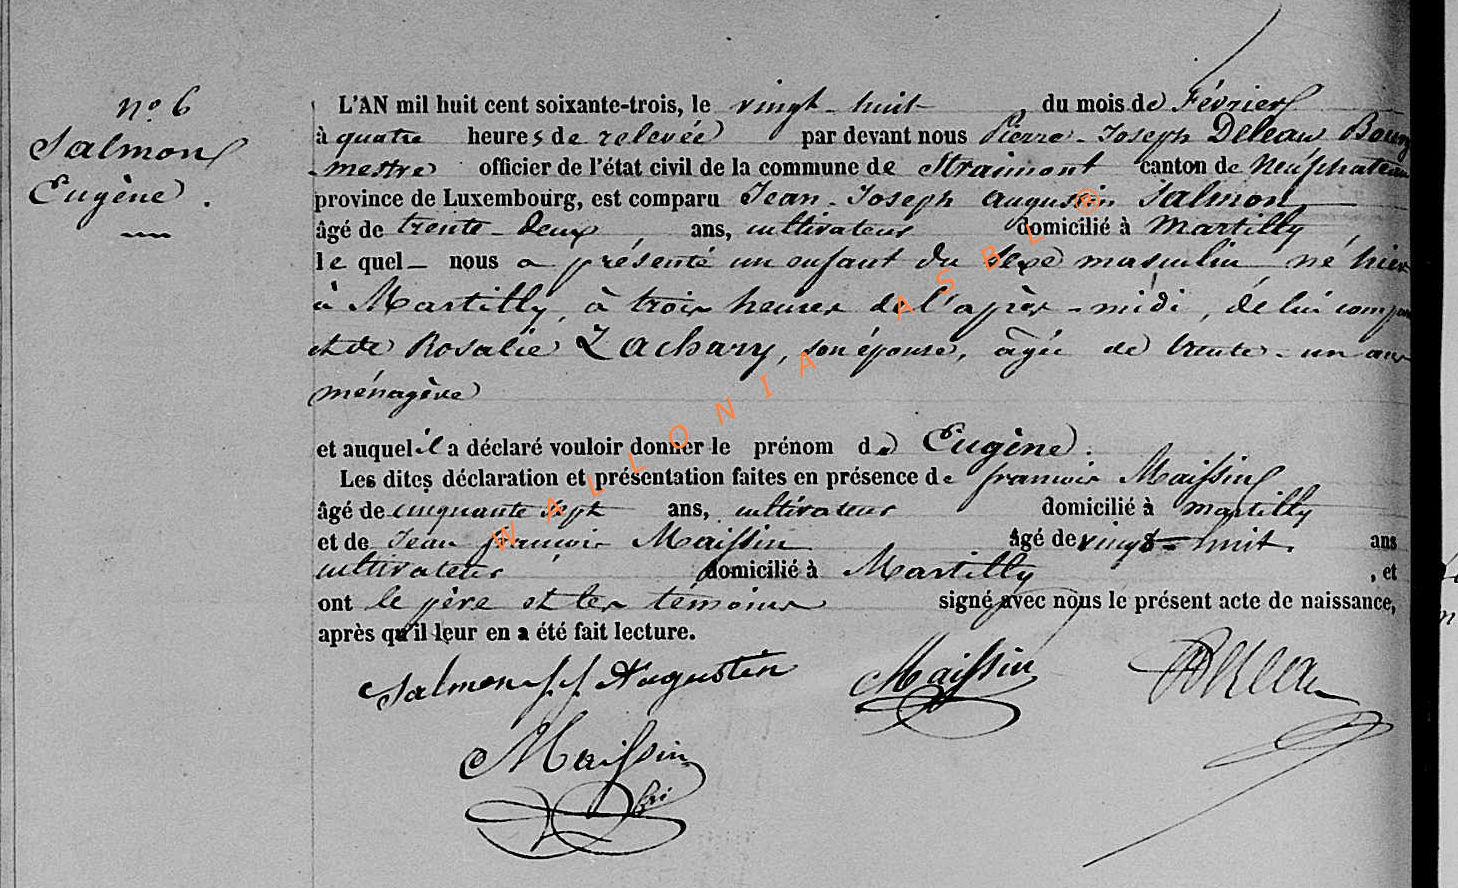 n° 6
Salmon
Eugène.
L'AN mil huit cent soixante-trois, le vingt-huit, du mois de Février
à quatre heures de relevée par devant nous Pierre-Joseph Deleau Bourg
mestre officier de l'état civil de la commune de Straimont canton de Neufchateau
province de Luxembourg, est comparu Jean-Joseph Augustin Salmon,
âgé de trente-deux, ans, cultivateur domicilié à Martilly
le quel nous a présenté un enfant du sexe masculin né hier
à Martilly, à trois heures de l'après-midi, de lui comp
et de Rosalie Zachary, son épouse, âgée de trente-un ans
ménagère
et auquel il a déclaré vouloir donner le prénom de Eugène.
Les dites déclaration et présentation faites en présence de françois Maissin
âgé de cinquante sept ans, cultivateur domicilié à Martilly
et de Jean françois Maissin âgé de vingt-huit. ans
cultivateur domicilié à Martilly, et
ont le père et les temoins signé avec nous le présent acte de naissance,
après qu'il leur en a été fait lecture.
Salmon J J Augustin Maissin Deleau
Maissin
WALLONIA ASBL ®